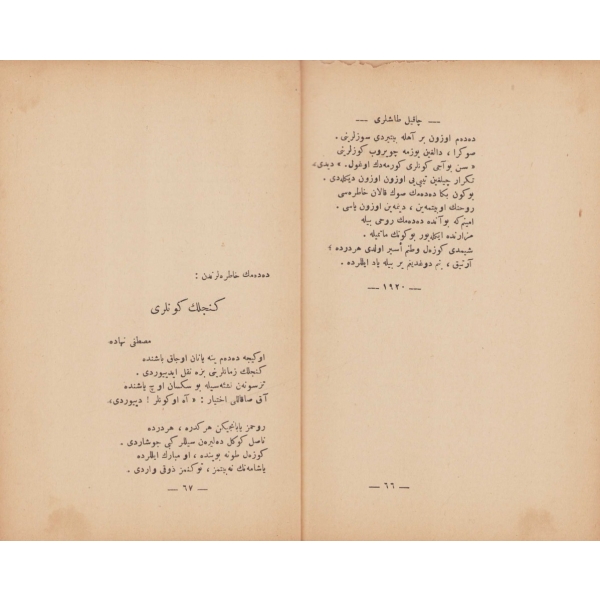 — چاقیل طاشلری —
دەدەم اوزون بر آهله بیتیردی سوزلرینی .
صوكرا ، دالغین یوزمه چویروب كوزلرینی
« سن بو آجی كونلری كورمەدك اوغول. » دیدی،
تكرار چیلغین تیپی‌یی اوزون اوزون دیكله‌دی .
بوكون بكا دەدەمك صوك قالان خاطرەسی
روحنك اویتمەین ، دینمەین اوزون یاسی .
امینم‌كه بو آندە دەدەمك روحی بیله
مزارندە ایكلەیور بوكونك ماتمیله .
شیمدی كوزەل وطنم أسیر اولدی هر دردە ؛
آرتیق ، بنم دوغدیغم یر بیله یاد ایللردە .
— ١٩٢٠ —
— ٦٦ —
دەدەمك خاطرەلرندن :
كنجلك كونلری
مصطفی نهادە
او كیجه دەدەم ینه یانان اوجاق باشندە
كنجلك زمانلرینی بزە نقل ایدییوردی .
ترسونەن نشئەسیله بو سكسان اوچ یاشندە
آق صاقاللی اختیار : « آە او كونلر ! دییوردی،
روحمز یابانجیكن هر كدرە ، هر دردە
ناصل كوكل دەلیرەن سیللر كبی جوشاردی .
كوزەل طونه بویندە ، او مبارك ایللردە
یاشامەنك نه‌بیتمز ، توكنمز ذوقی واردی .
— ٦٧ —